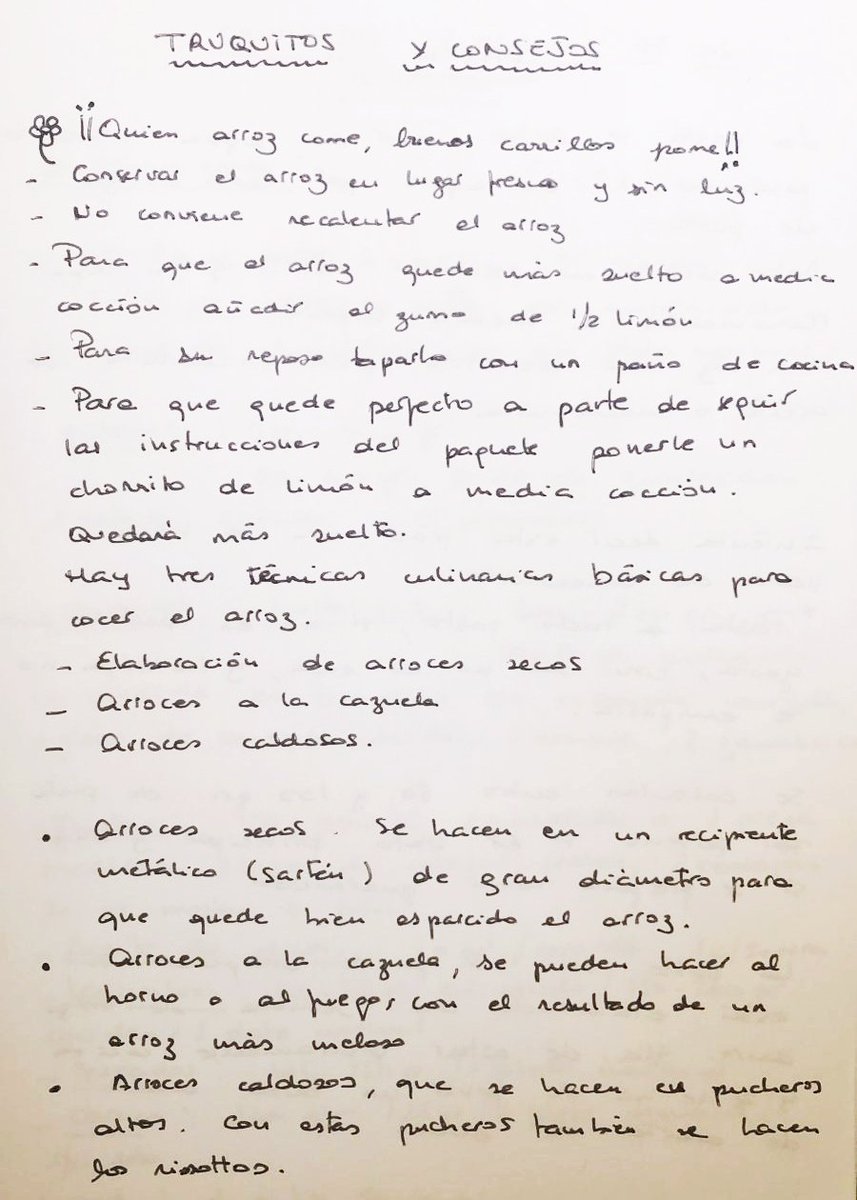 TRUQUITOS Y CONSEJOS
¡¡Quien arroz come, buenos carrillos pone!!
- Conservar el arroz en lugar fresco y sin luz.
- No conviene recalentar el arroz
- Para que el arroz quede más suelto a media
cocción añadir el zumo de 1/2 limón
- Para su reposo taparlo con un paño de cocina
- Para que quede perfecto a parte de seguir
las instrucciones del paquete ponerle un
chorrito de limón a media cocción.
Quedará más suelto.
Hay tres técnicas culinarias básicas para
cocer el arroz.
- Elaboración de arroces secos
- Arroces a la cazuela
- Arroces caldosos.
• Arroces secos. Se hacen en un recipiente
metálico (sartén) de gran diámetro para
que quede bien esparcido el arroz.
• Arroces a la cazuela, se pueden hacer al
horno o al fuego, con el resultado de un
arroz más meloso
• Arroces caldosos, que se hacen en pucheros
altos. Con estos pucheros también se hacen
los rissottos.